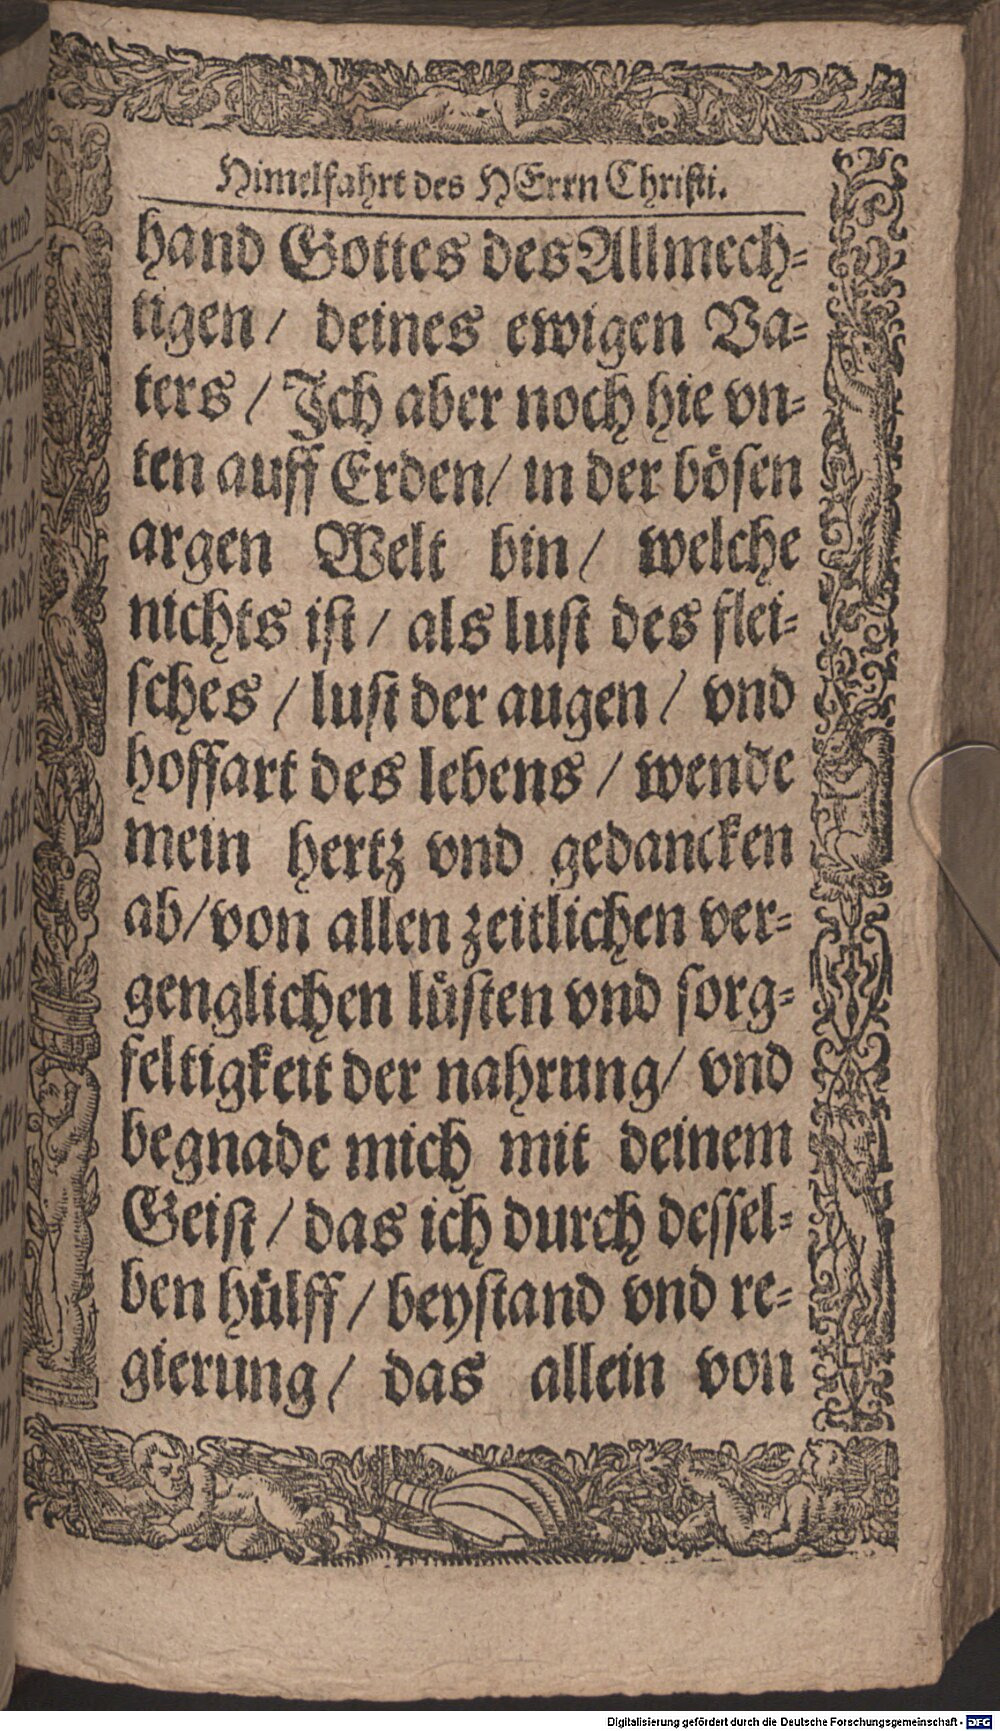 Himelfahrt des HErrn Christi.
hand Gottes des Allmech⸗
tigen/ deines ewigen Va⸗
ters / Ich aber noch hie vn⸗
ten auff Erden/ in der bösen
argen Welt bin/ welche
nichts ist/ als lust des flei⸗
sches / lust der augen / vnd
hoffart des lebens / wende
mein hertz vnd gedancken
ab/von allen zeitlichen ver⸗
genglichen lüsten vnd sorg⸗
feltigkeit der nahrung/ vnd
begnade mich mit deinem
Geist / das ich durch dessel⸗
ben hülff / beystand vnd re⸗
gierung / das allein von
Digitalisierung gefördert durch die Deutsche Forschungsgemeinschaft - DFG